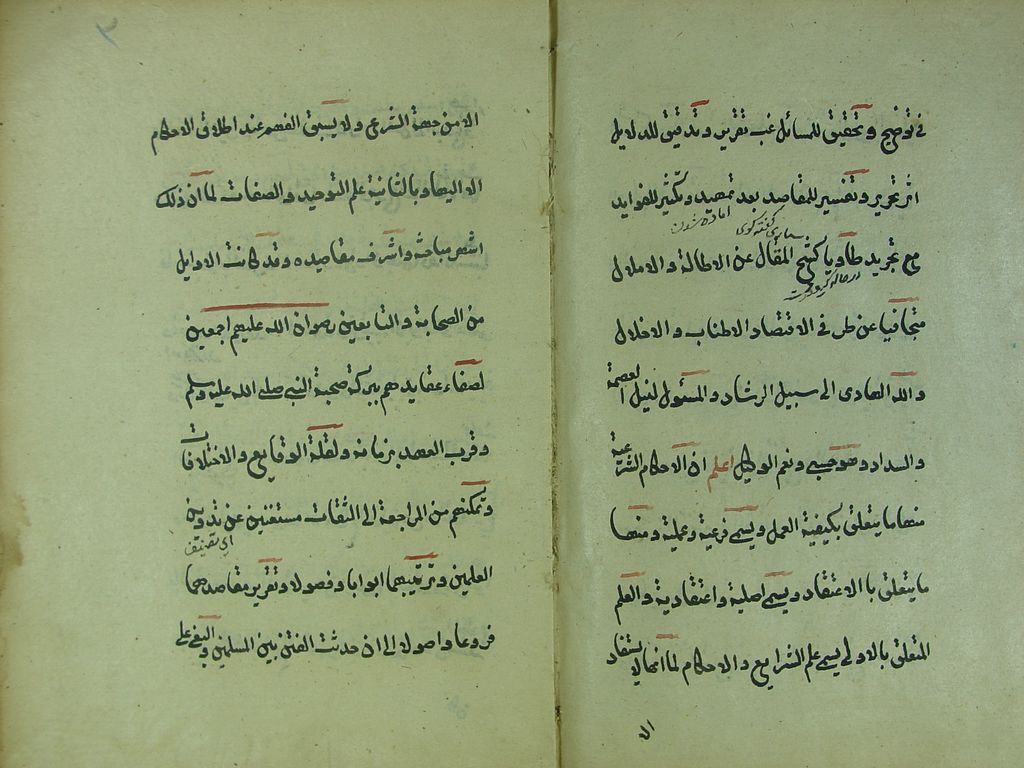 في توضيح وتحقيق للمسائل غب تقرير وتدقيق للدلايل
اثر تحرير وتفسير للمقاصد بعد تمهيد وتكثير للفوايد
مع تجريد طاويا كشح المقال عن الاطالة والاملال
متجافيا عن طرفي الاقتصاد الاطناب والاخلال
والله الهادى الى سبيل الرشاد والمسئول لنيل العصمة
والسداد وهو حسبي ونعم الوكيل اعلم ان الاحكام الشرعية
منها ما يتعلق بكيفية العمل ويسمى فرعية وعملية ومنها
ما يتعلق بالاعتقاد ويسمى اصلية واعتقادية والعلم
المتعلق بالاولى يسمى علم الشرايع والاحكام لما انها لا يستفاد
الا
٢
الا من جهة الشرع ولا يسبق الفهم عند اطلاق الاحكام
الا اليها وبالثانية علم التوحيد والصفات لما ان ذلك
اشهر مباحثه واشرف مقاصده وقد كانت الاوايل
من الصحابة والتابعين رضوان الله عليهم اجمعين
لصفاء عقايدهم ببركة صحبة النبي صلى الله عليه وسلم
وقرب العهد بزمانه ولقلة الوقايع والاختلافات
وتمكنهم من المراجعة الى الثقات مستغنين عن تدوين
اي تصنيف
العلمين وترتيبهما ابوابا وفصولا وتقرير مقاصدهما
فروعا واصولا الى ان حدثت الفتن بين المسلمين والبغي على